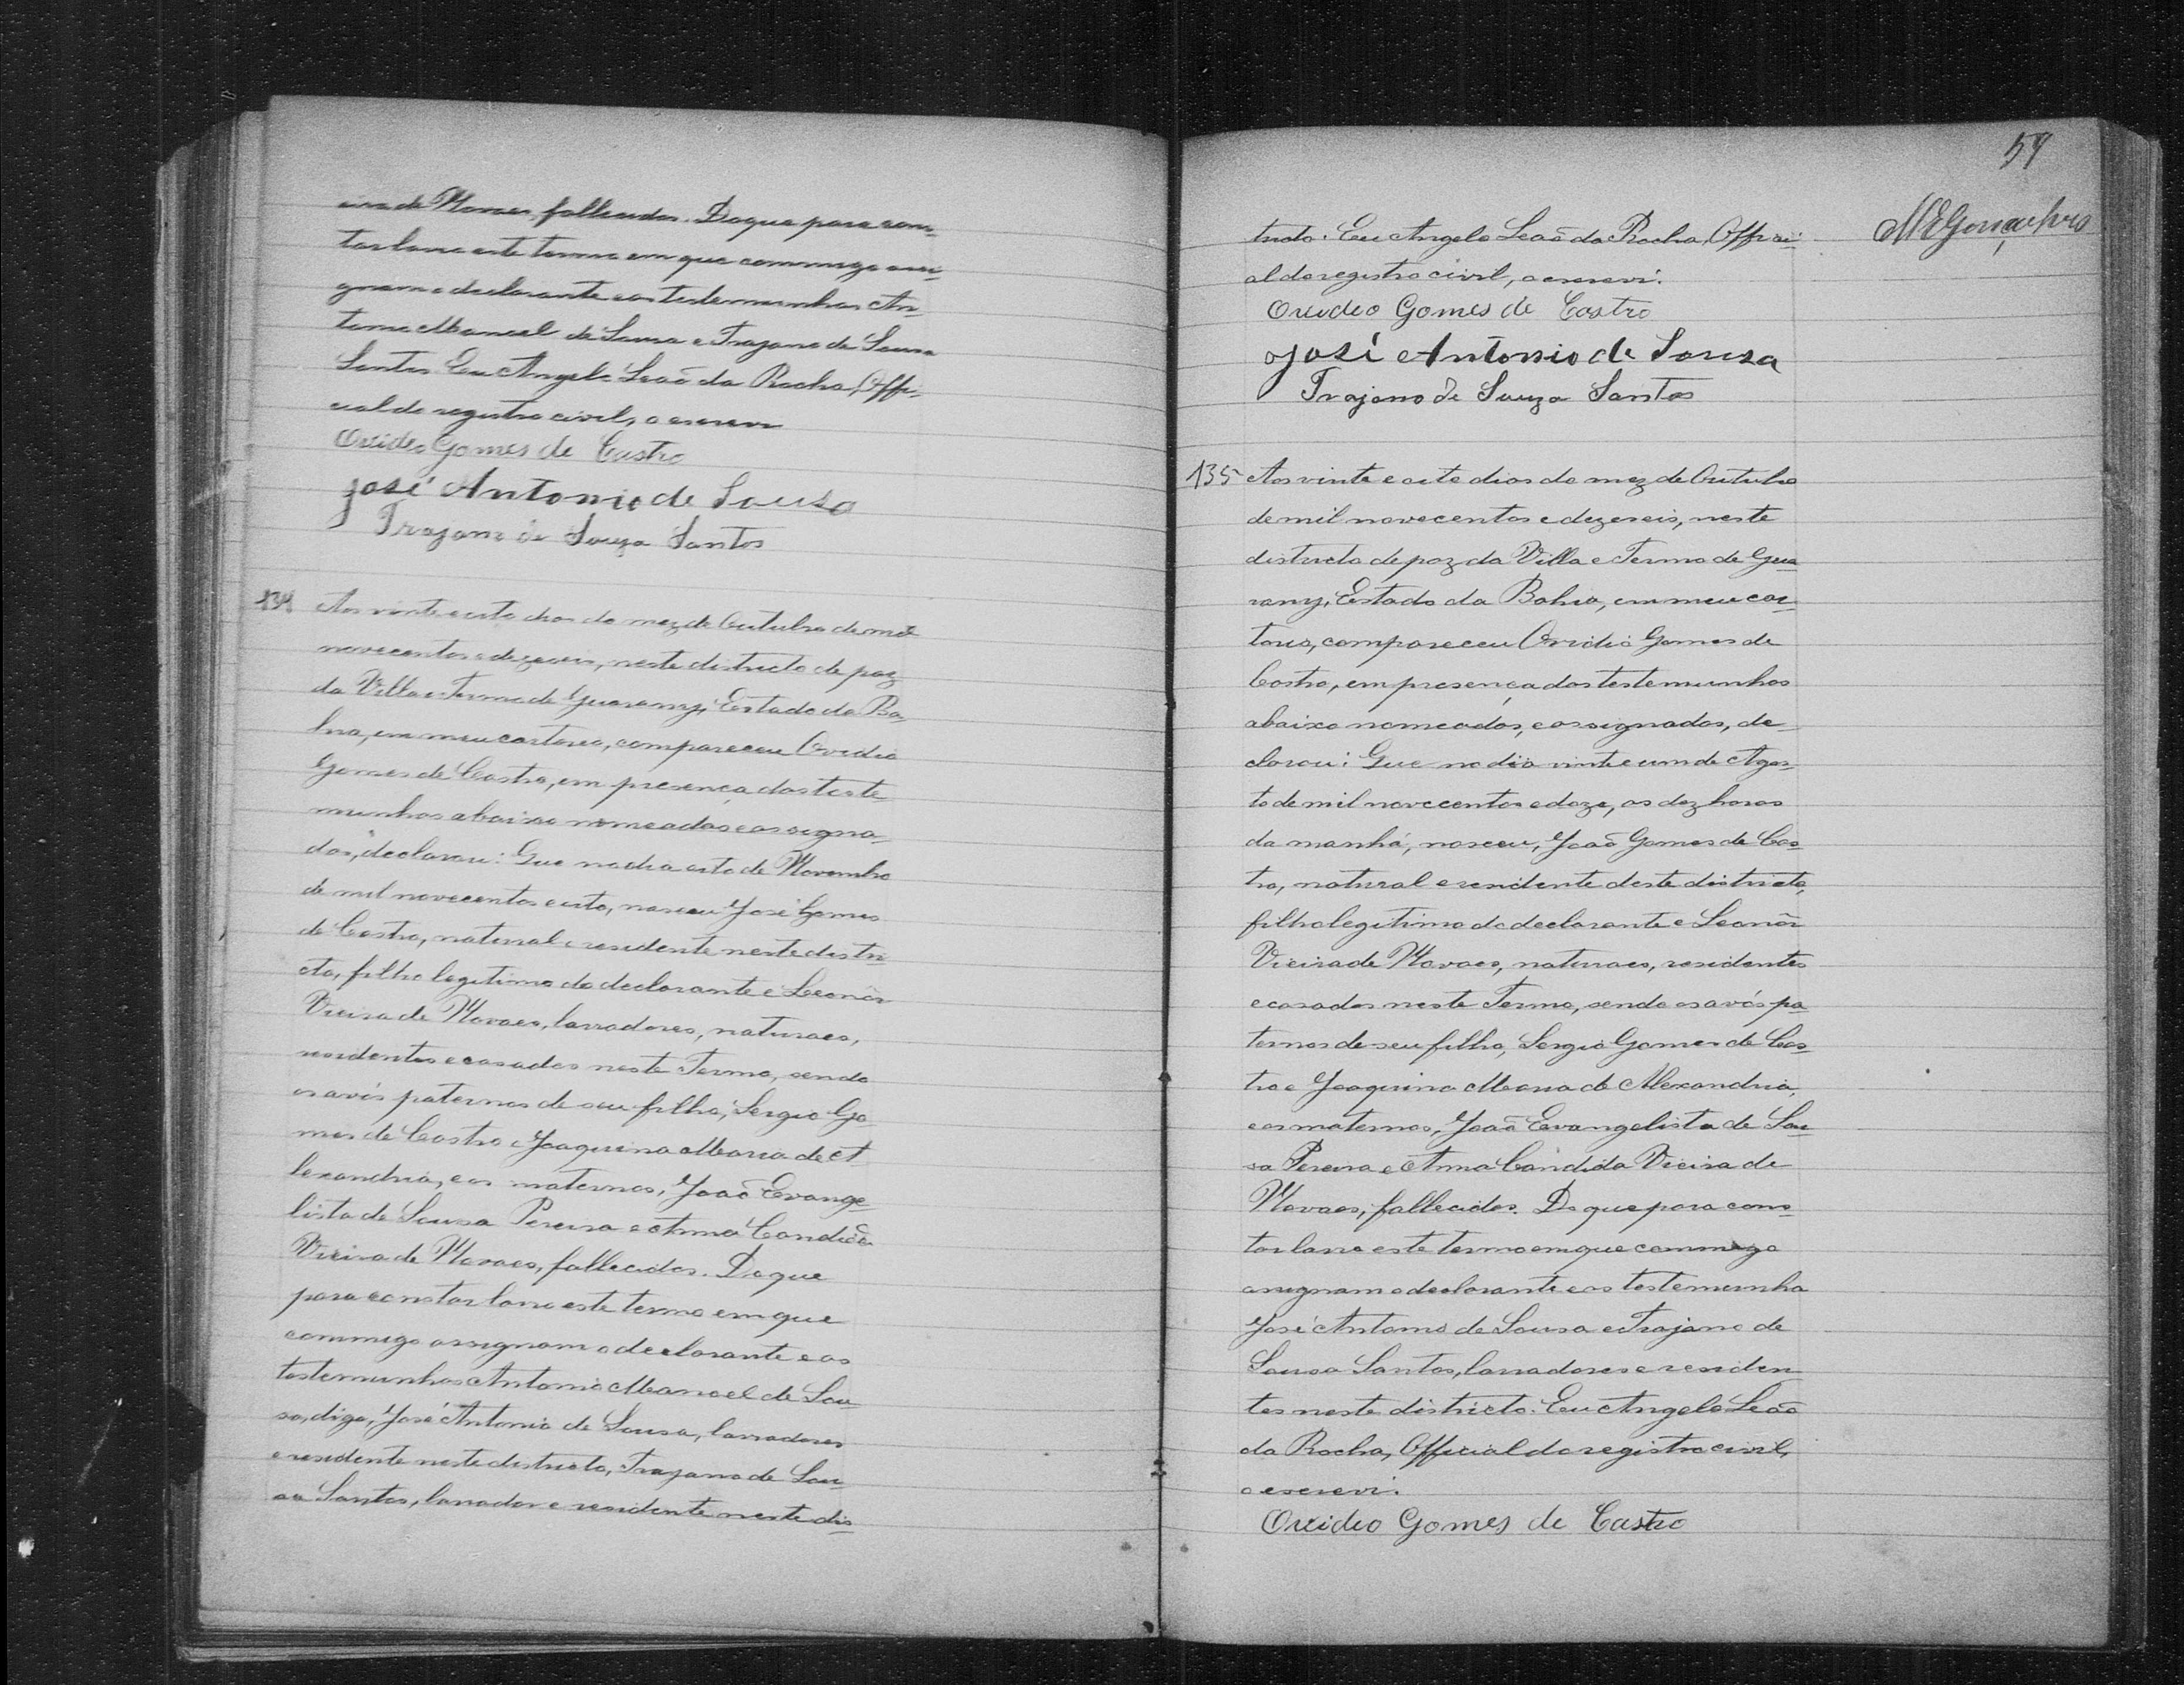 eira de Novaes, fallecidos. Do que para cons-
tar lavro este termo em que commigo assi-
gnam o declarante e as testemunhas An-
tonio Manoel de Sousa e Trajano de Sousa
Santos Eu Angelo Leaõ da Rocha, Offi-
cial do registro civil, o escrevi
Ovideo Gomes de Castro
José Antonio de Sousa
Trajano de Souza Santos
134 Aos vinte e oito dias do mez de Outubro de mil
novecentos e dezeseis, neste districto de paz
da Villa e Termo de Guarany, Estado da Ba-
hia, em meu cartorio, compareceu Ovidio
Gomes de Castro, em presença das teste
munhas abaixo nomeadas e assigna-
das, declarou: Que no dia oito de Novembro
de mil novecentos e oito, nasceu José Gomes
de Castro, natural e residente neste distri-
cto, filho legitimo do declarante e Leonôr
Vieira de Novaes, lavradores, naturaes,
residentes e casados neste Termo, sendo
os avós paternos de seu filho, Sergio Go-
mes de Castro e Joaquina Maria de A
lexandria, e os maternos, Joaõ Evange-
lista de Sousa Pereira e Anna Candida
Vieira de Novaes, fallecidos. Do que
para constar lavro este termo em que
commigo assignam o declarante e as
testemunhas Antonio Manoel de Sou-
sa, digo, José Antonio de Sousa, lavradores
e residente neste districto, Trajano de Sou-
sa Santos, lavrador e residente neste dis-
59
tricto. Eu Angelo Leaõ da Rocha, Offici-
al do registro civil, o escrevi.
MEGonçalves
Ovideo Gomes de Castro
José Antonio de Sousa
Trajano de Souza Santos
135 Aos vinte e oito dias do mez de Outubro
de mil novecentos e dezeseis, neste
districto de paz da Villa e Termo de Gua-
rany, Estado da Bahia, em meu car-
torio, compareceu Ovidio Gomes de
Castro, em presença das testemunhas
abaixo nomeadas, e assignadas, de-
clarou: Que no dia vinte e um de Agos-
to de mil novecentos e doze, as dez horas
da manhã, nasceu, Joaõ Gomes de Cas-
tro, natural e residente deste districto,
filho legitimo do declarante e Leonôr
Vieira de Novaes, naturaes, residentes
e casados neste Termo, sendo os avós pa-
ternos de seu filho, Sergio Gomes de Cas-
tro e Joaquina Maria de Alexandria,
e os maternos, Joaõ Evangelista de Sou-
sa Pereira e Anna Candida Vieira de
Novaes, fallecidos. Do que para cons-
tar lavro este termo em que commigo
assignam o declarante e as testemunha
José Antonio de Sousa e Trajano de
Sousa Santos, lavradores e residen-
tes neste districto. Eu Angelo Leaõ
da Rocha, Official do registro civil,
o escrevi.
Ovideo Gomes de Castro